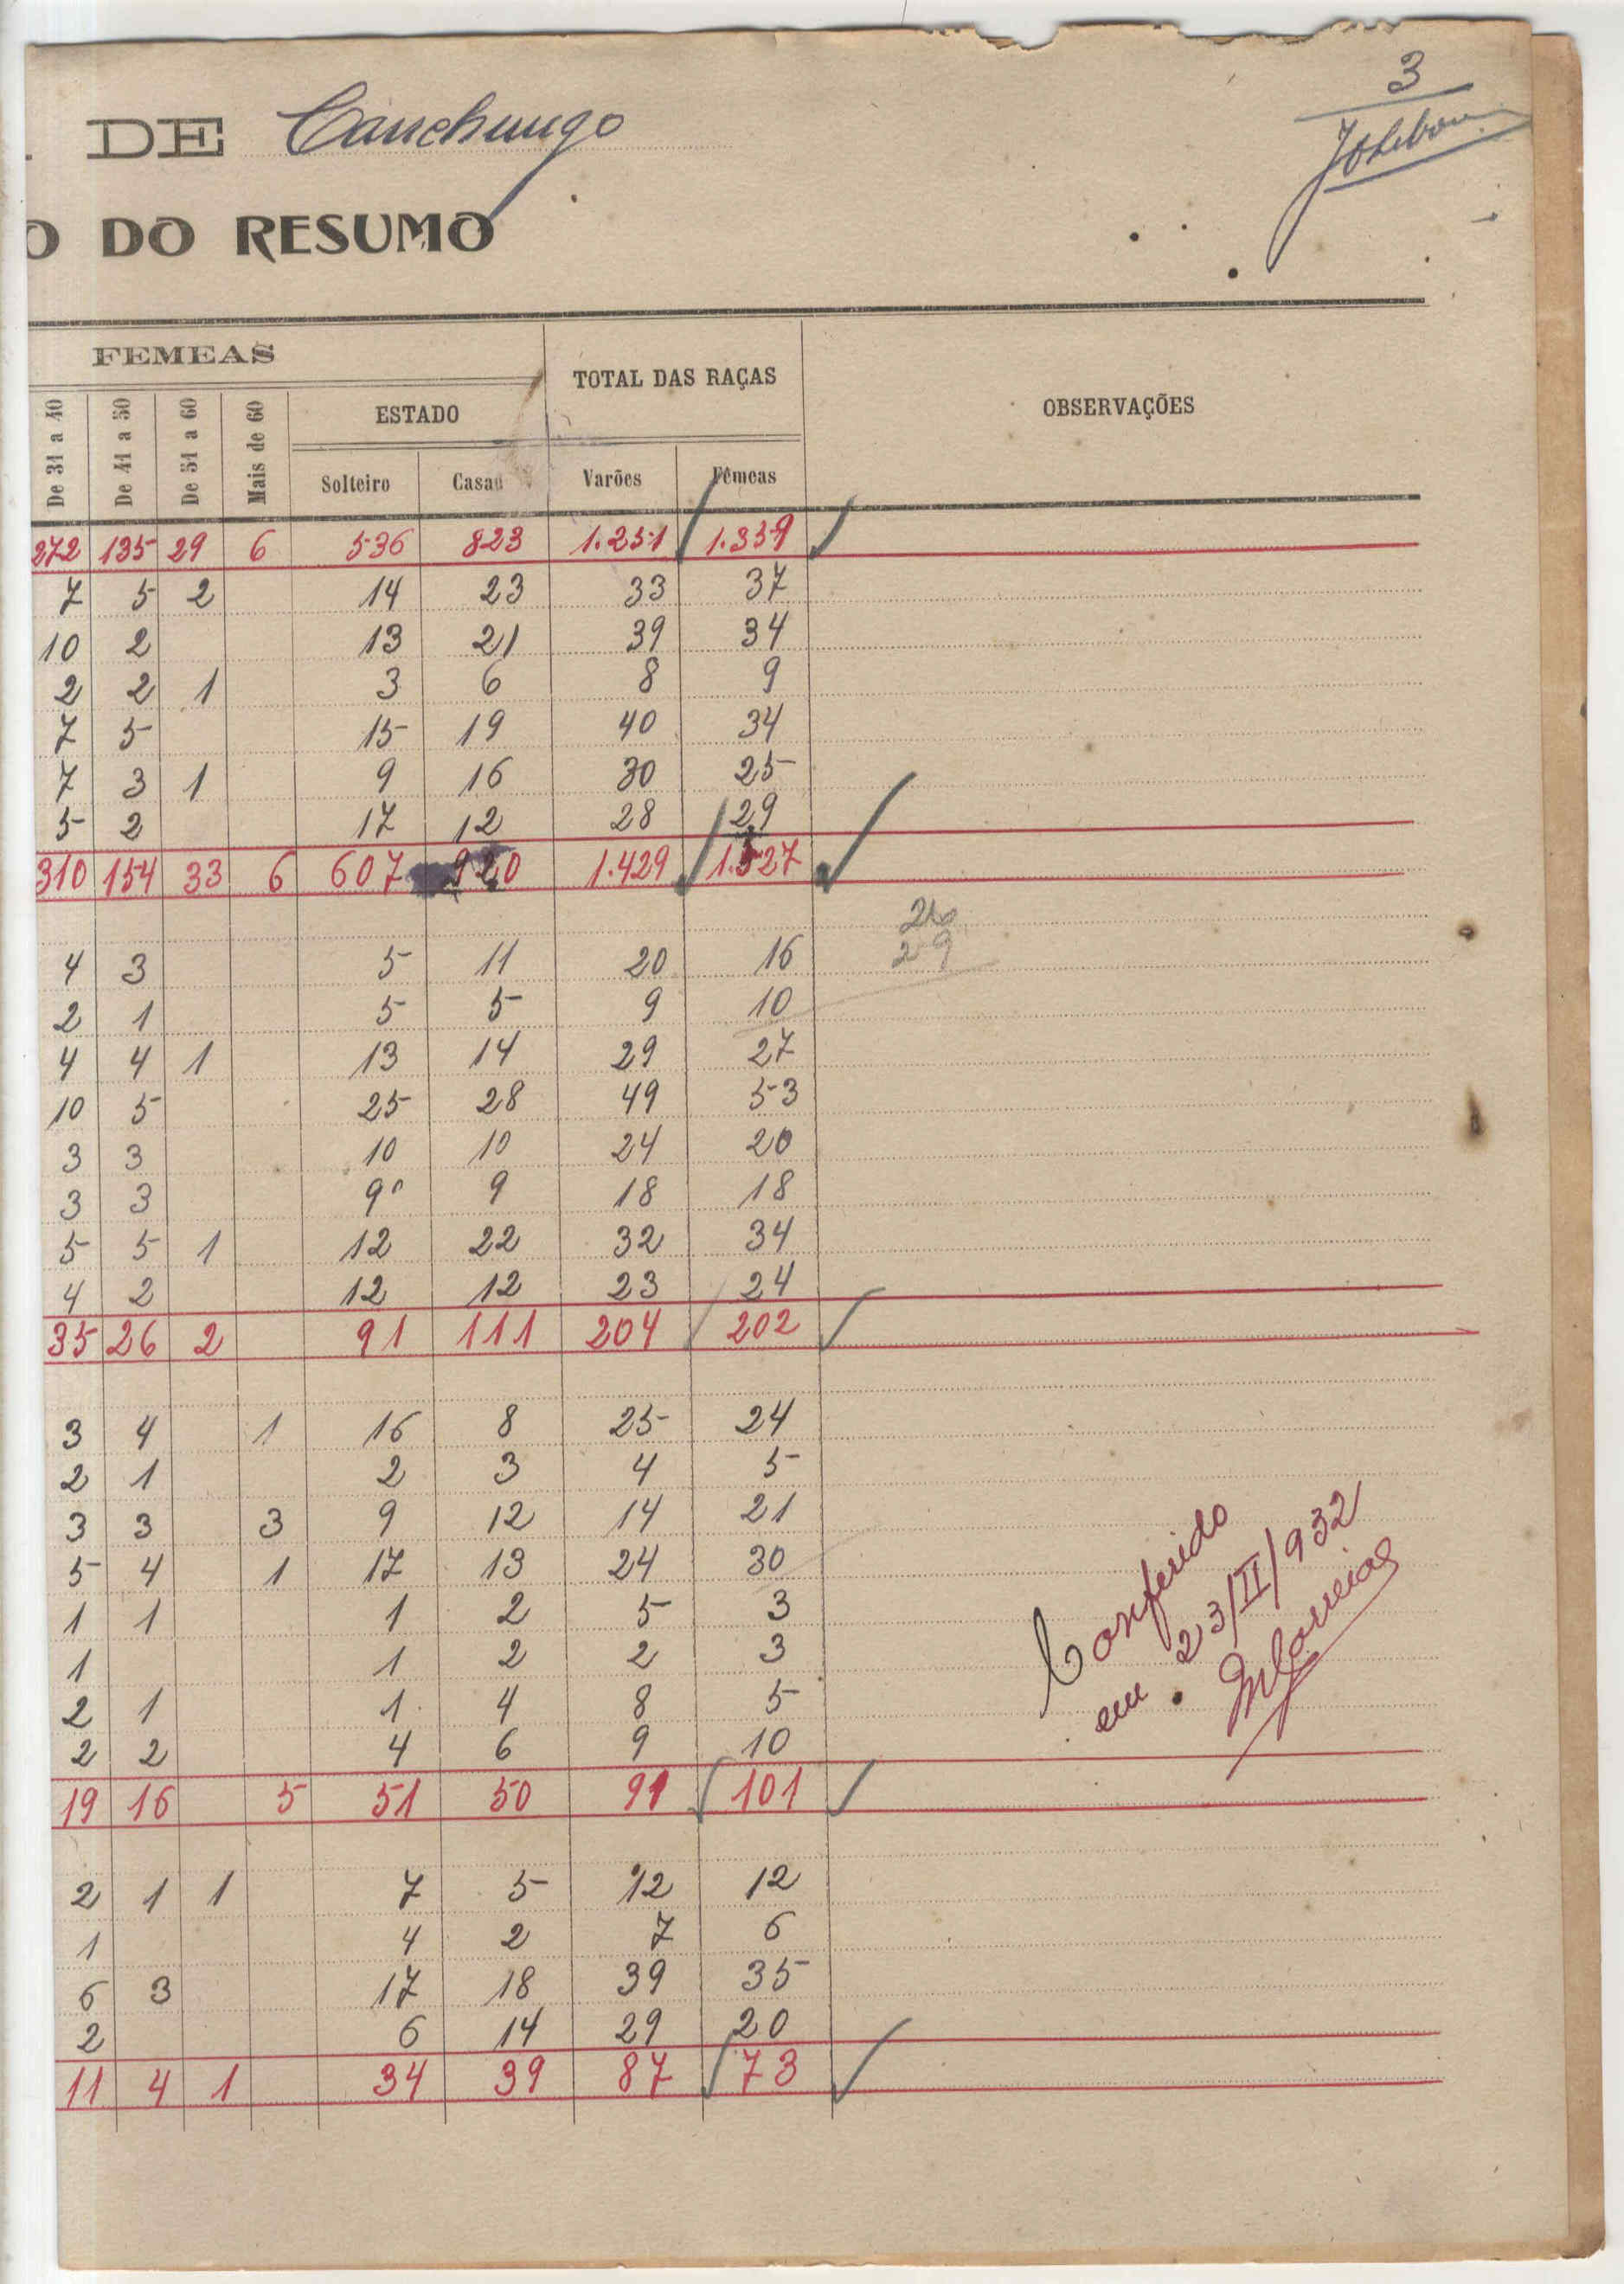 3
DE Canchungo
O DO RESUMO
FEMEAS
TOTAL DAS RAÇAS
OBSERVAÇÕES
ESTADO
De 31 a 40 De 41 a 50 De 51 a 60 Mais de 60 Solteiro Casad Varões Fêmeas
272 135 29 6 536 823 1.251 1.359
7 5 2 14 23 33 37
10 2 13 21 39 34
2 2 1 3 6 8 9
7 5 15 19 40 34
7 3 1 9 16 30 25
5 2 17 12 28 29
310 154 33 6 607 920 1.429 1.527
29
4 3 5 11 20 16
2 1 5 5 9 10
4 4 1 13 14 29 27
10 5 25 28 49 53
3 3 10 10 24 20
3 3 9 9 18 18
5 5 1 12 22 32 34
4 2 12 12 23 24
35 26 2 91 111 204 202
3 4 1 16 8 25 24
2 1 2 3 4 5
3 3 3 9 12 14 21
5 4 1 17 13 24 30
1 1 1 2 5 3
1 1 2 2 3
2 1 1 4 8 5
2 2 4 6 9 10
19 16 5 51 50 91 101
Conferido
em 23/II/932
2 1 1 7 5 12 12
1 4 2 7 6
6 3 17 18 39 35
2 6 14 29 20
11 4 1 34 39 87 73